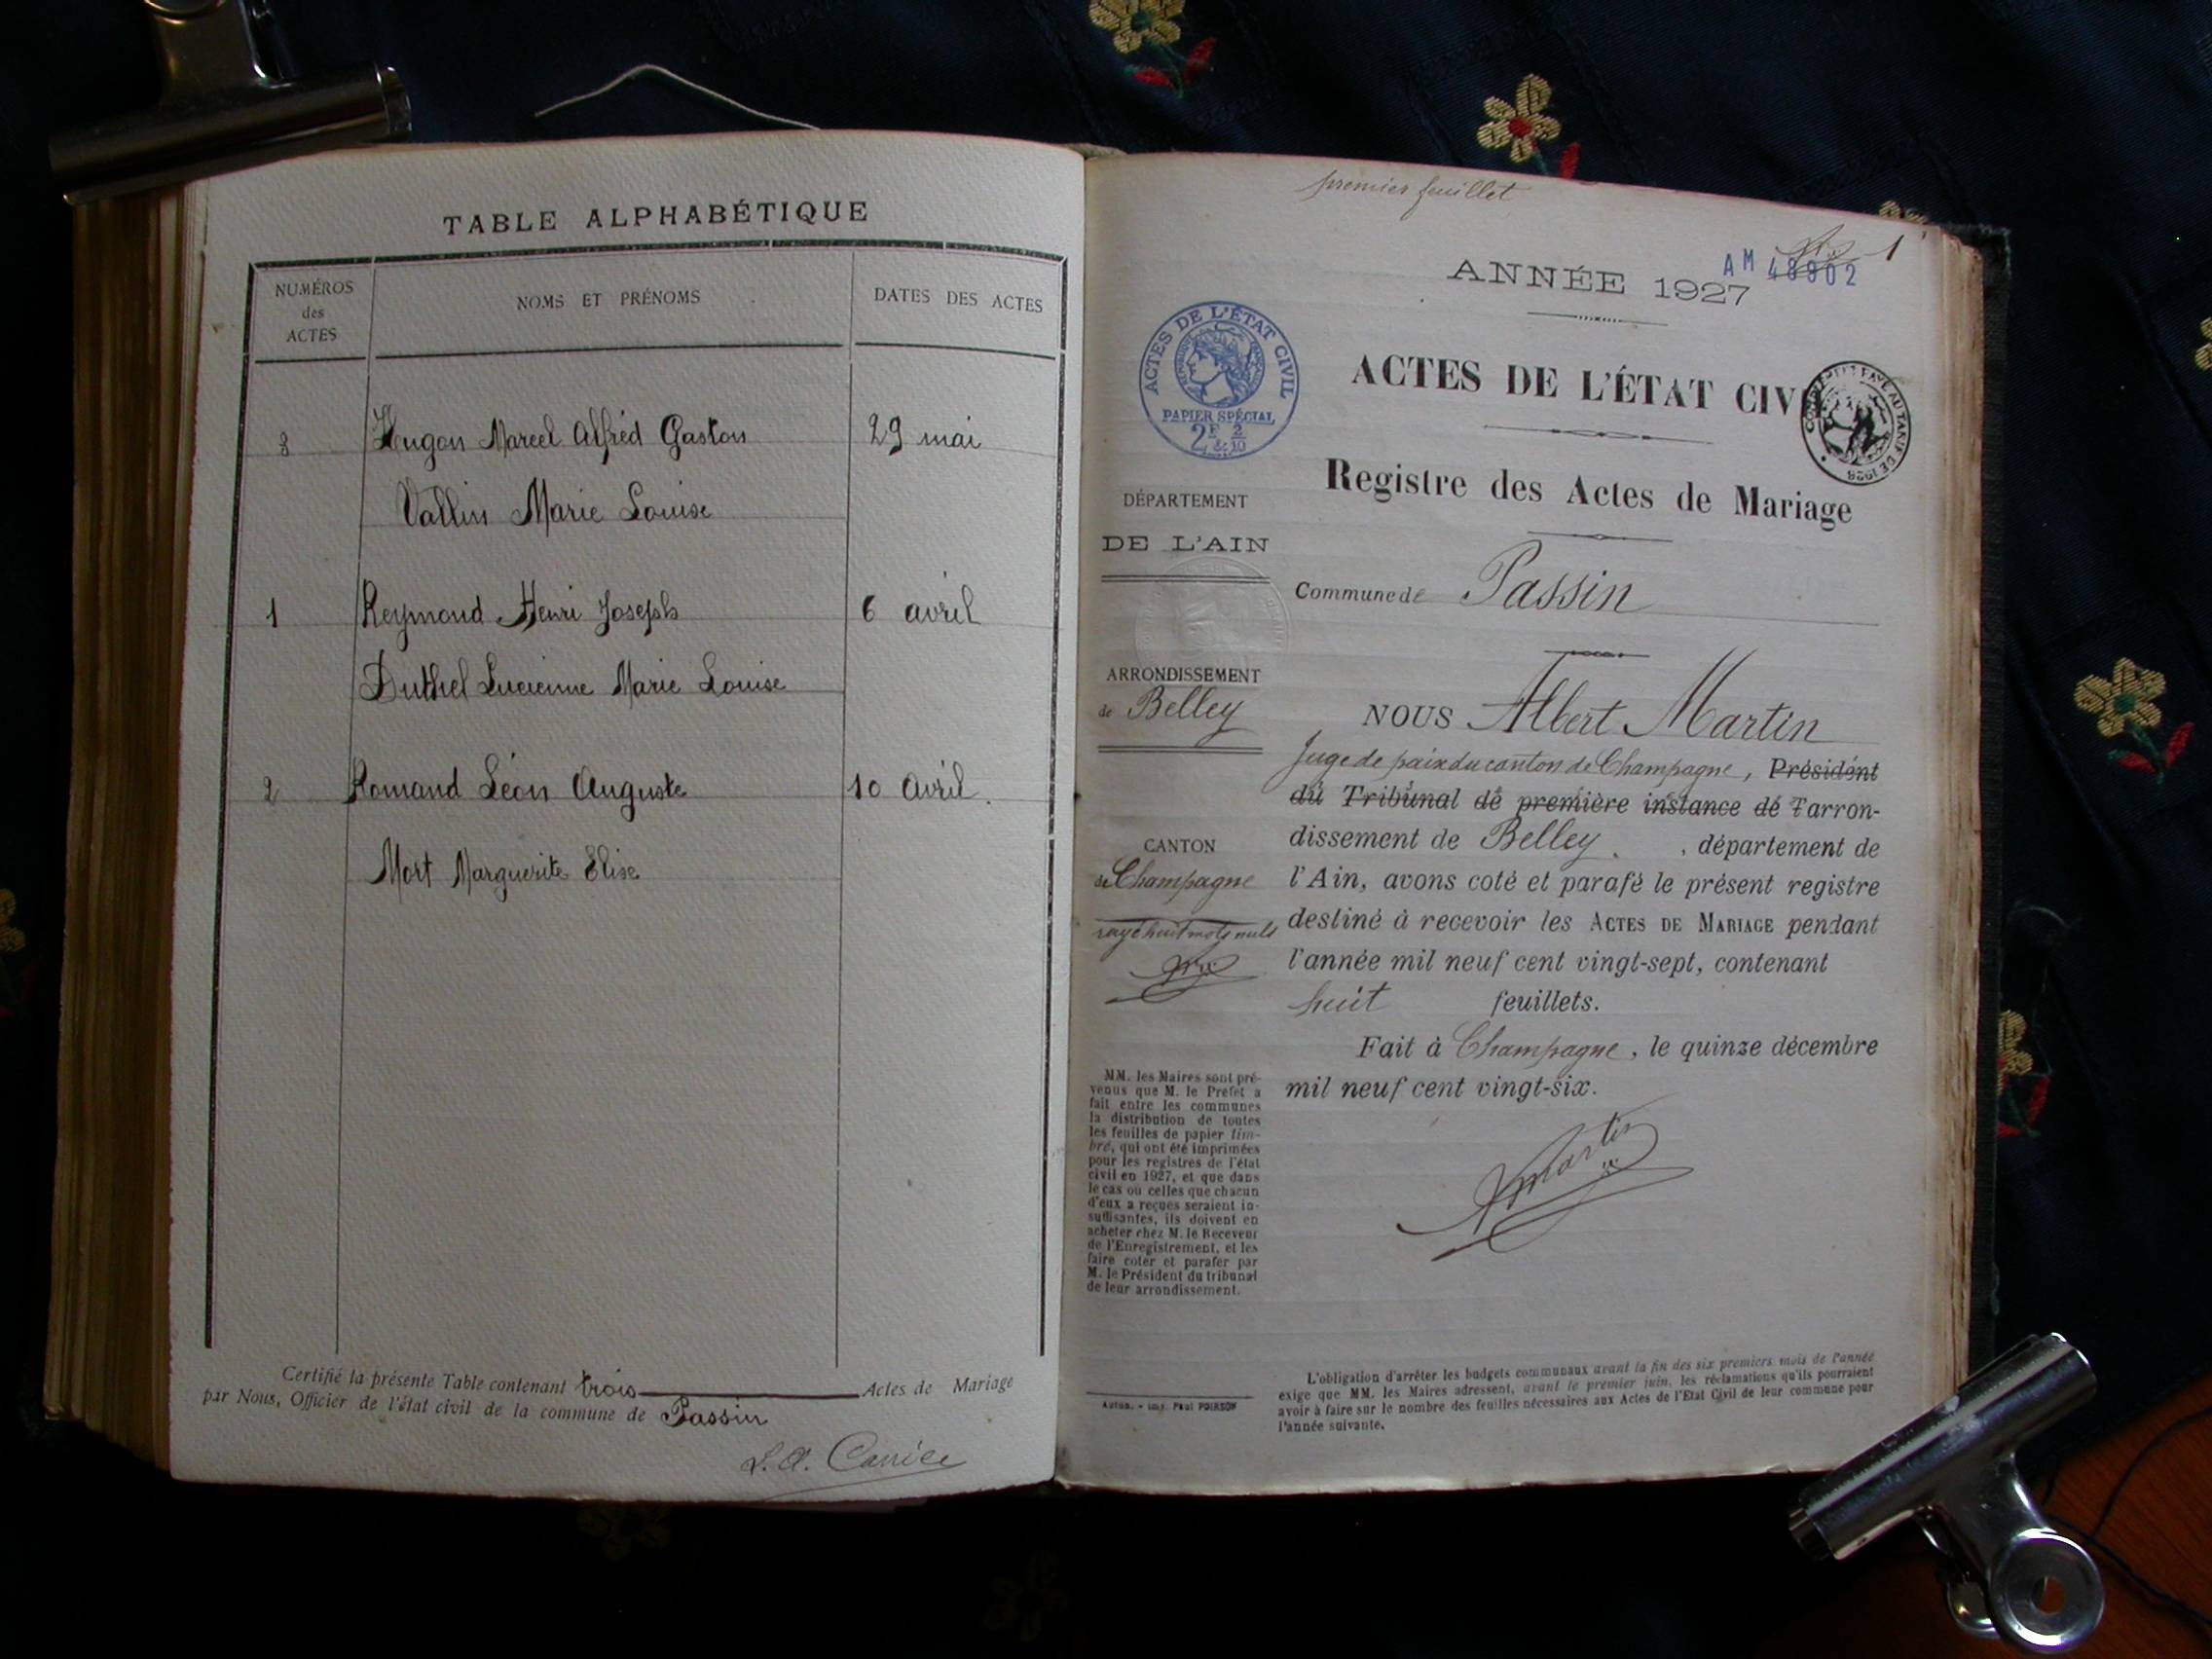 TABLE ALPHABÉTIQUE
NUMÉROS
des
ACTES
NOMS ET PRÉNOMS
DATES DES ACTES
3 Hugon Marcel Alfred Gaston 29 mai
Vallin Marie Louise
1 Reymond Henri Joseph 6 avril
Duthel Lucienne Marie Louise
2 Romand Léon Auguste 10 avril.
Mort Marguerite Elise
Certifié la présente Table contenant trois Actes de Mariage
par Nous, Officier de l'état civil de la commune de Passin
premier feuillet
1
AM 48902
ANNÉE 1927
ACTES DE L'ÉTAT CIVIL
PAPIER SPÉCIAL
2F 2/10
ACTES DE L'ÉTAT CIVIL
Registre des Actes de Mariage
DÉPARTEMENT
DE L'AIN
Commune de Passin
ARRONDISSEMENT
de Belley
CANTON
de Champagne
rayé huit mots nuls
NOUS Albert Martin
Juge de paix du canton de Champagne, Président
du Tribunal de première instance de l'arron-
dissement de Belley, département de
l'Ain, avons coté et parafé le présent registre
destiné à recevoir les ACTES DE MARIAGE pendant
l'année mil neuf cent vingt-sept, contenant
huit feuillets.
Fait à Champagne, le quinze décembre
mil neuf cent vingt-six.
AMartin
MM. les Maires sont pré-
venus que M. le Préfet a
fait entre les communes
la distribution de toutes
les feuilles de papier tim-
bré, qui ont été imprimées
pour les registres de l'état
civil en 1927, et que dans
le cas où celles que chacun
d'eux a reçues seraient in-
suffisantes, ils doivent en
acheter chez M. le Receveur
de l'Enregistrement, et les
faire coter et parafer par
M. le Président du tribunal
de leur arrondissement.
Imp. Paul POIRSON
L'obligation d'arrêter les budgets communaux avant la fin des six premiers mois de l'année
exige que MM. les Maires adressent, avant le premier juin, les réclamations qu'ils pourraient
avoir à faire sur le nombre des feuilles nécessaires aux Actes de l'Etat Civil de leur commune pour
l'année suivante.